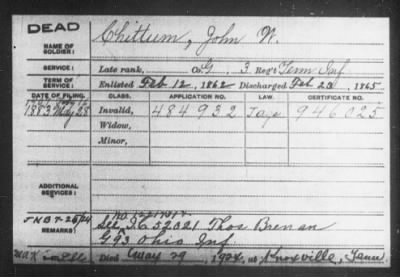 DEAD
NAME OF SOLDIER:
Chittum, John W.
SERVICE:
Late rank, Co. G, 3 Reg't Tenn Inf
TERM OF SERVICE:
Enlisted Feb 12, 1862 Discharged Feb 23, 1865
DATE OF FILING. CLASS. APPLICATION NO. LAW. CERTIFICATE NO.
1883 May 28 Invalid, 484932 946025
Widow,
Minor,
ADDITIONAL SERVICES:
REMARKS:
See 52021 Thos Brenan
G 93 Ohio Inf
Died May 29, 1924, at Knoxville, Tenn